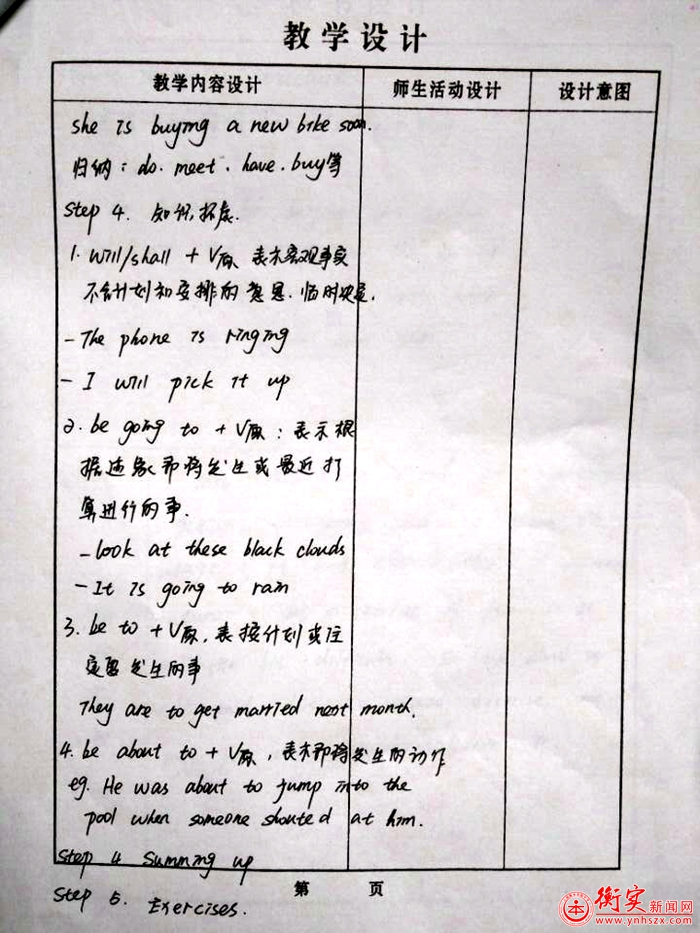 教学设计
教学内容设计 师生活动设计 设计意图
she is buying a new bike soon.
归纳：do. meet. have. buy等
Step 4. 知识拓展.
1. will/shall + V原 表示客观事实
不含计划和安排的意思. 临时决定.
- The phone is ringing
- I will pick it up
2. be going to + V原：表示根
据迹象即将发生或最近打
算进行的事.
- look at these black clouds
- It is going to rain
3. be to + V原, 表按计划或注
定要发生的事
They are to get married next month.
4. be about to + V原, 表示即将发生的动作
eg. He was about to jump into the
pool when someone shouted at him.
Step 4 Summing up
第 页
Step 5. Exercises.
衡实新闻网
www.ynhszx.com